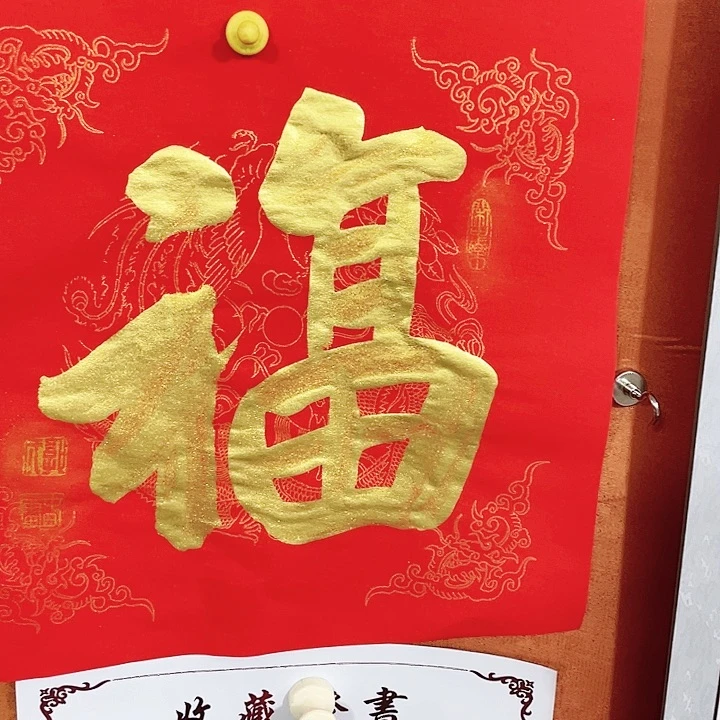 福
收藏證書